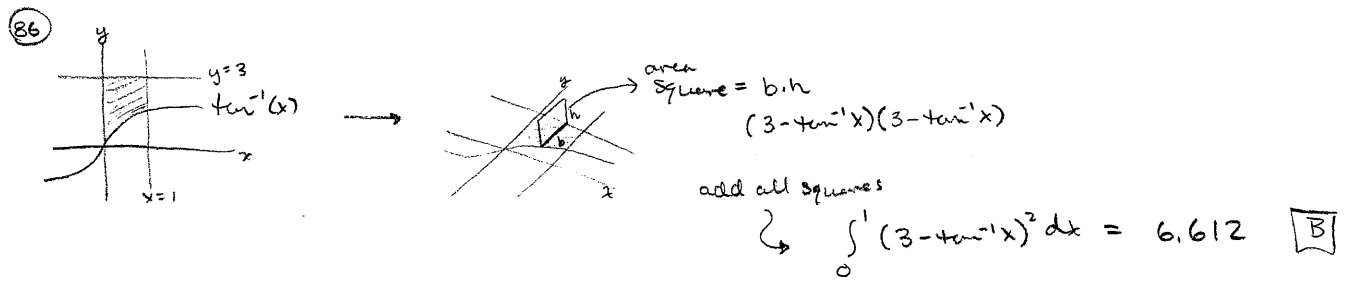 86
y
y=3
tan⁻¹(x)
x
x=1
y
h
b
x
area
square = b.h
(3-tan⁻¹x)(3-tan⁻¹x)
add all squares
∫₀¹ (3-tan⁻¹x)² dx = 6.612 B